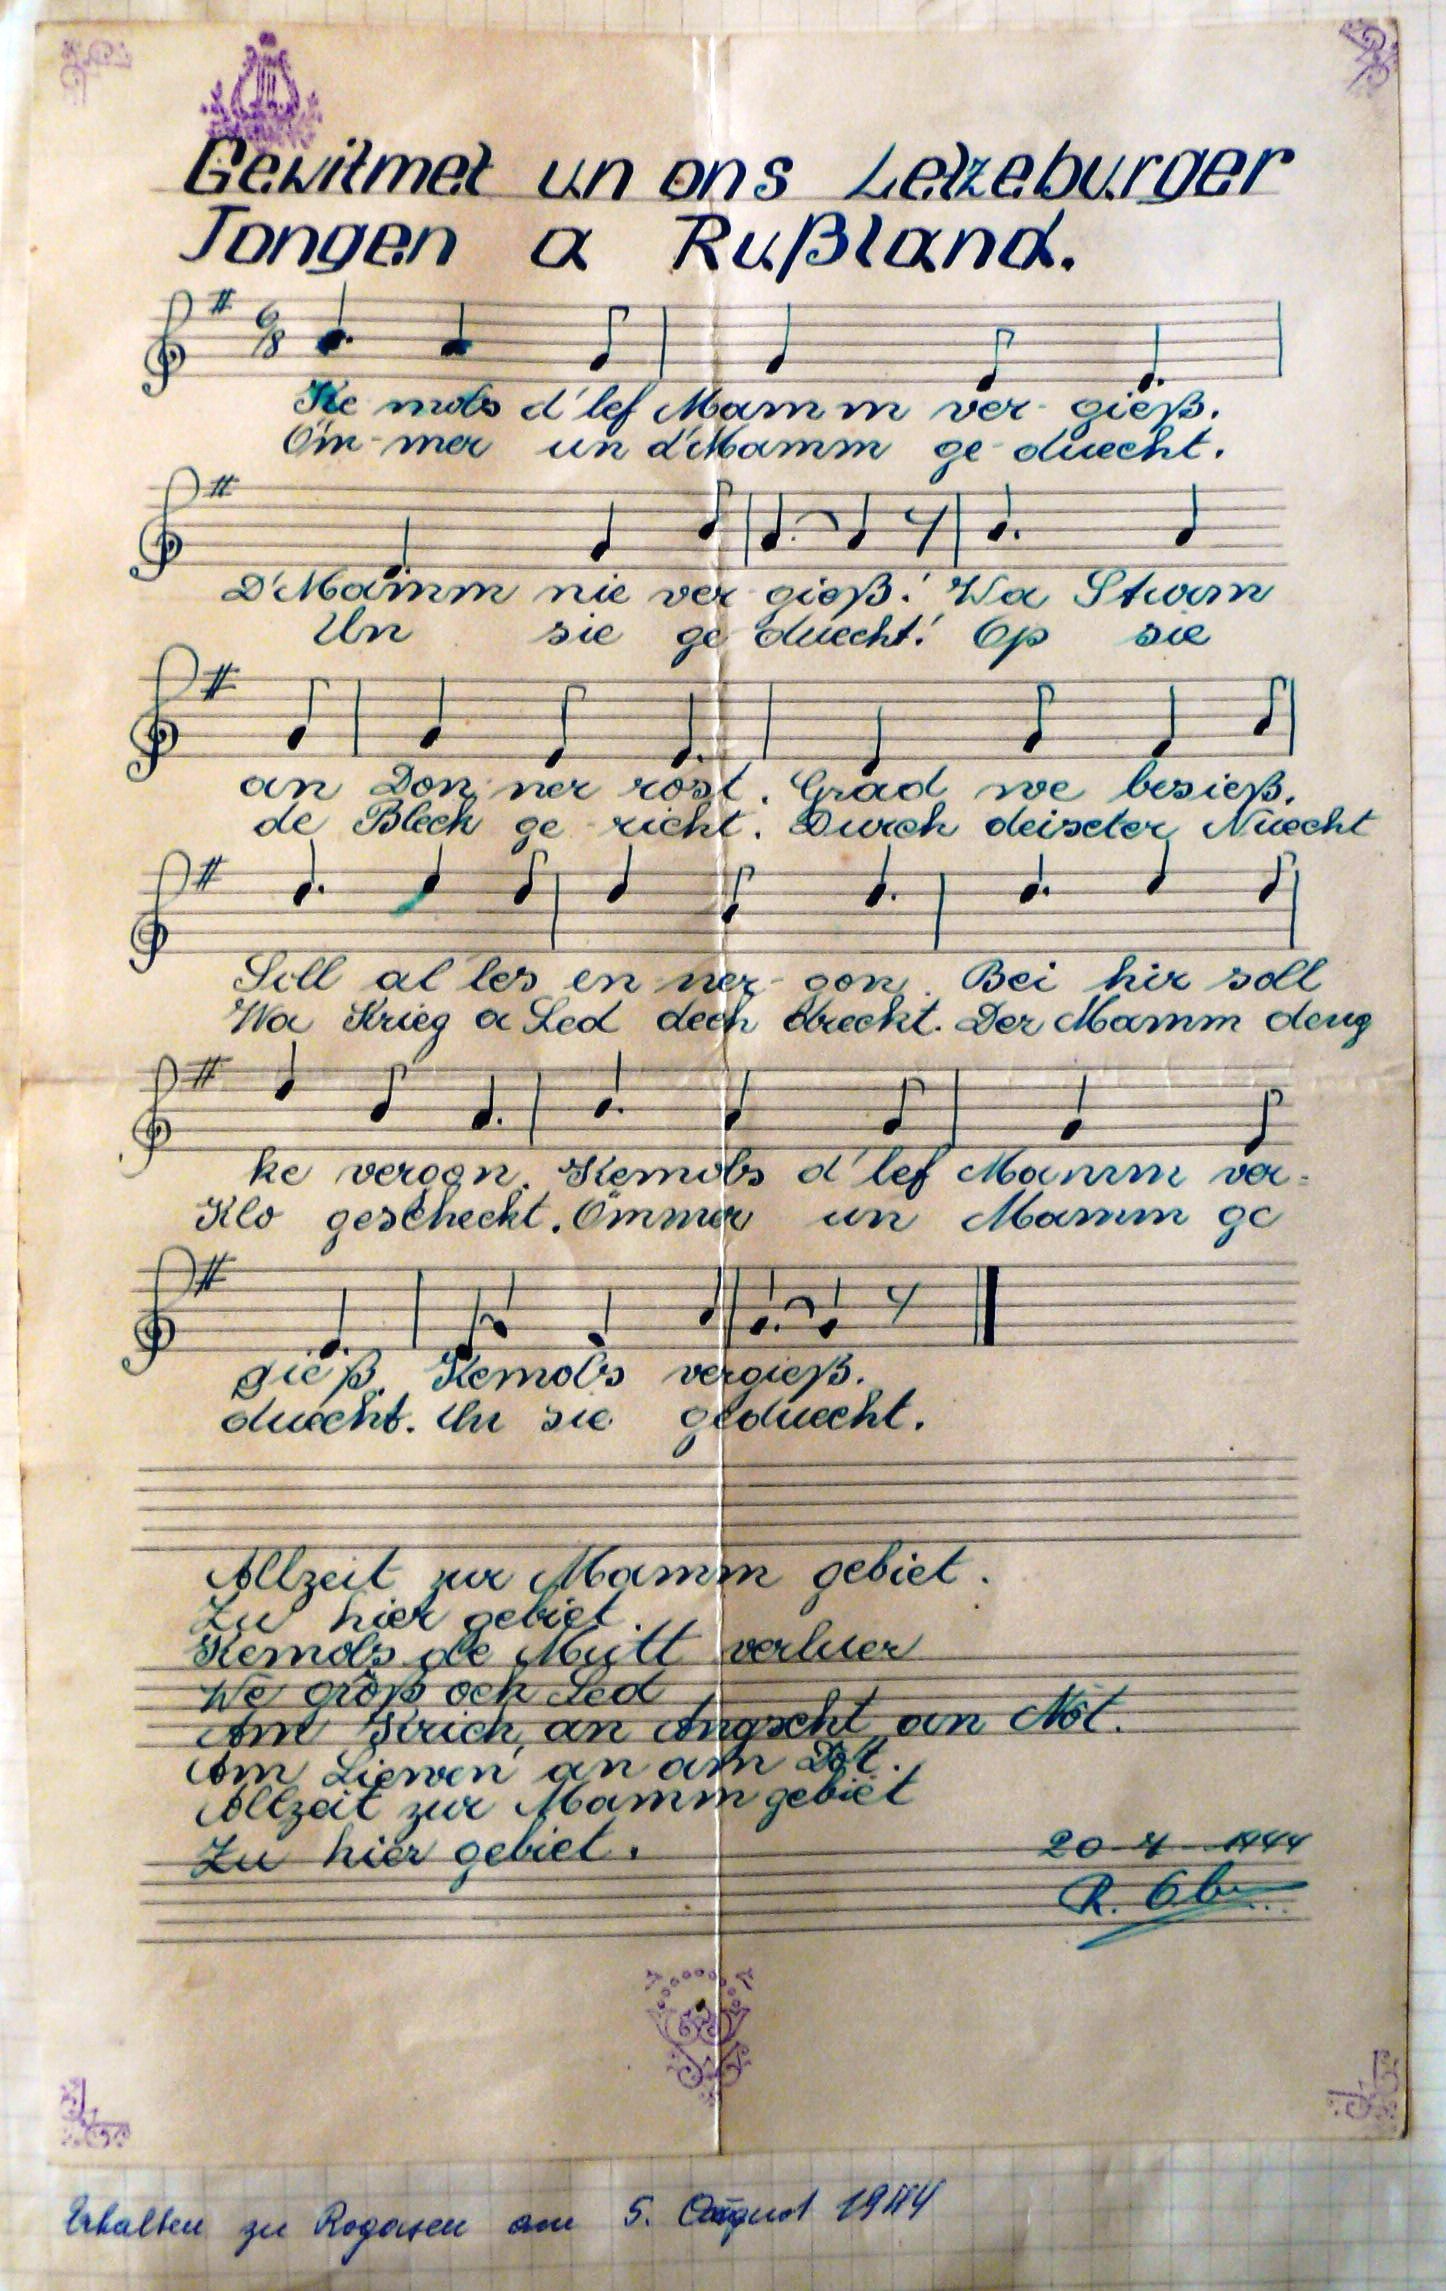 Gewitmet un ons Letzeburger
Jongen a Rußland.
6/8
Ke mols d'lef Mamm ver- gieß.
Öm-mer un d'Mamm ge-duecht.
D'Mamm nie ver gieß! Wa Sturm
Un sie ge duecht! Op sie
an Don ner rost. Grad we besieß.
de Bleck ge richt. Durch deischter Nuecht
Soll al les en ner- gon. Bei hir soll
Wa Krieg a Led dech dreckt. Der Mamm deng
ke vergon. Kemols d'lef Mamm ver-
Klo gescheckt. Ömmer un Mamm ge
gieß. Kemols vergieß.
duecht. Un sie geduecht.
Allzeit zur Mamm gebiet.
Zu hier gebiet.
Kemols de Mutt verluer
We größ och Led
Am Krich, an Angscht an Nôt.
Am Liewen an am Dot.
Allzeit zur Mamm gebiet
Zu hier gebiet.
20-7-1944
R.
Erhalten zu Rogasen am 5. August 1944